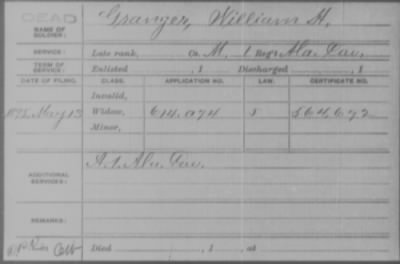 DEAD
NAME OF SOLDIER: Granger, William H.
SERVICE: Late rank, Co. M, 1 Reg't Ala. Cav.
TERM OF SERVICE: Enlisted , 1 Discharged , 1
DATE OF FILING. CLASS. APPLICATION NO. LAW. CERTIFICATE NO.
Invalid,
May 13 Widow, 614,074 564,672
Minor,
ADDITIONAL SERVICES: Ala. Cav.
REMARKS:
Died , 1 , at